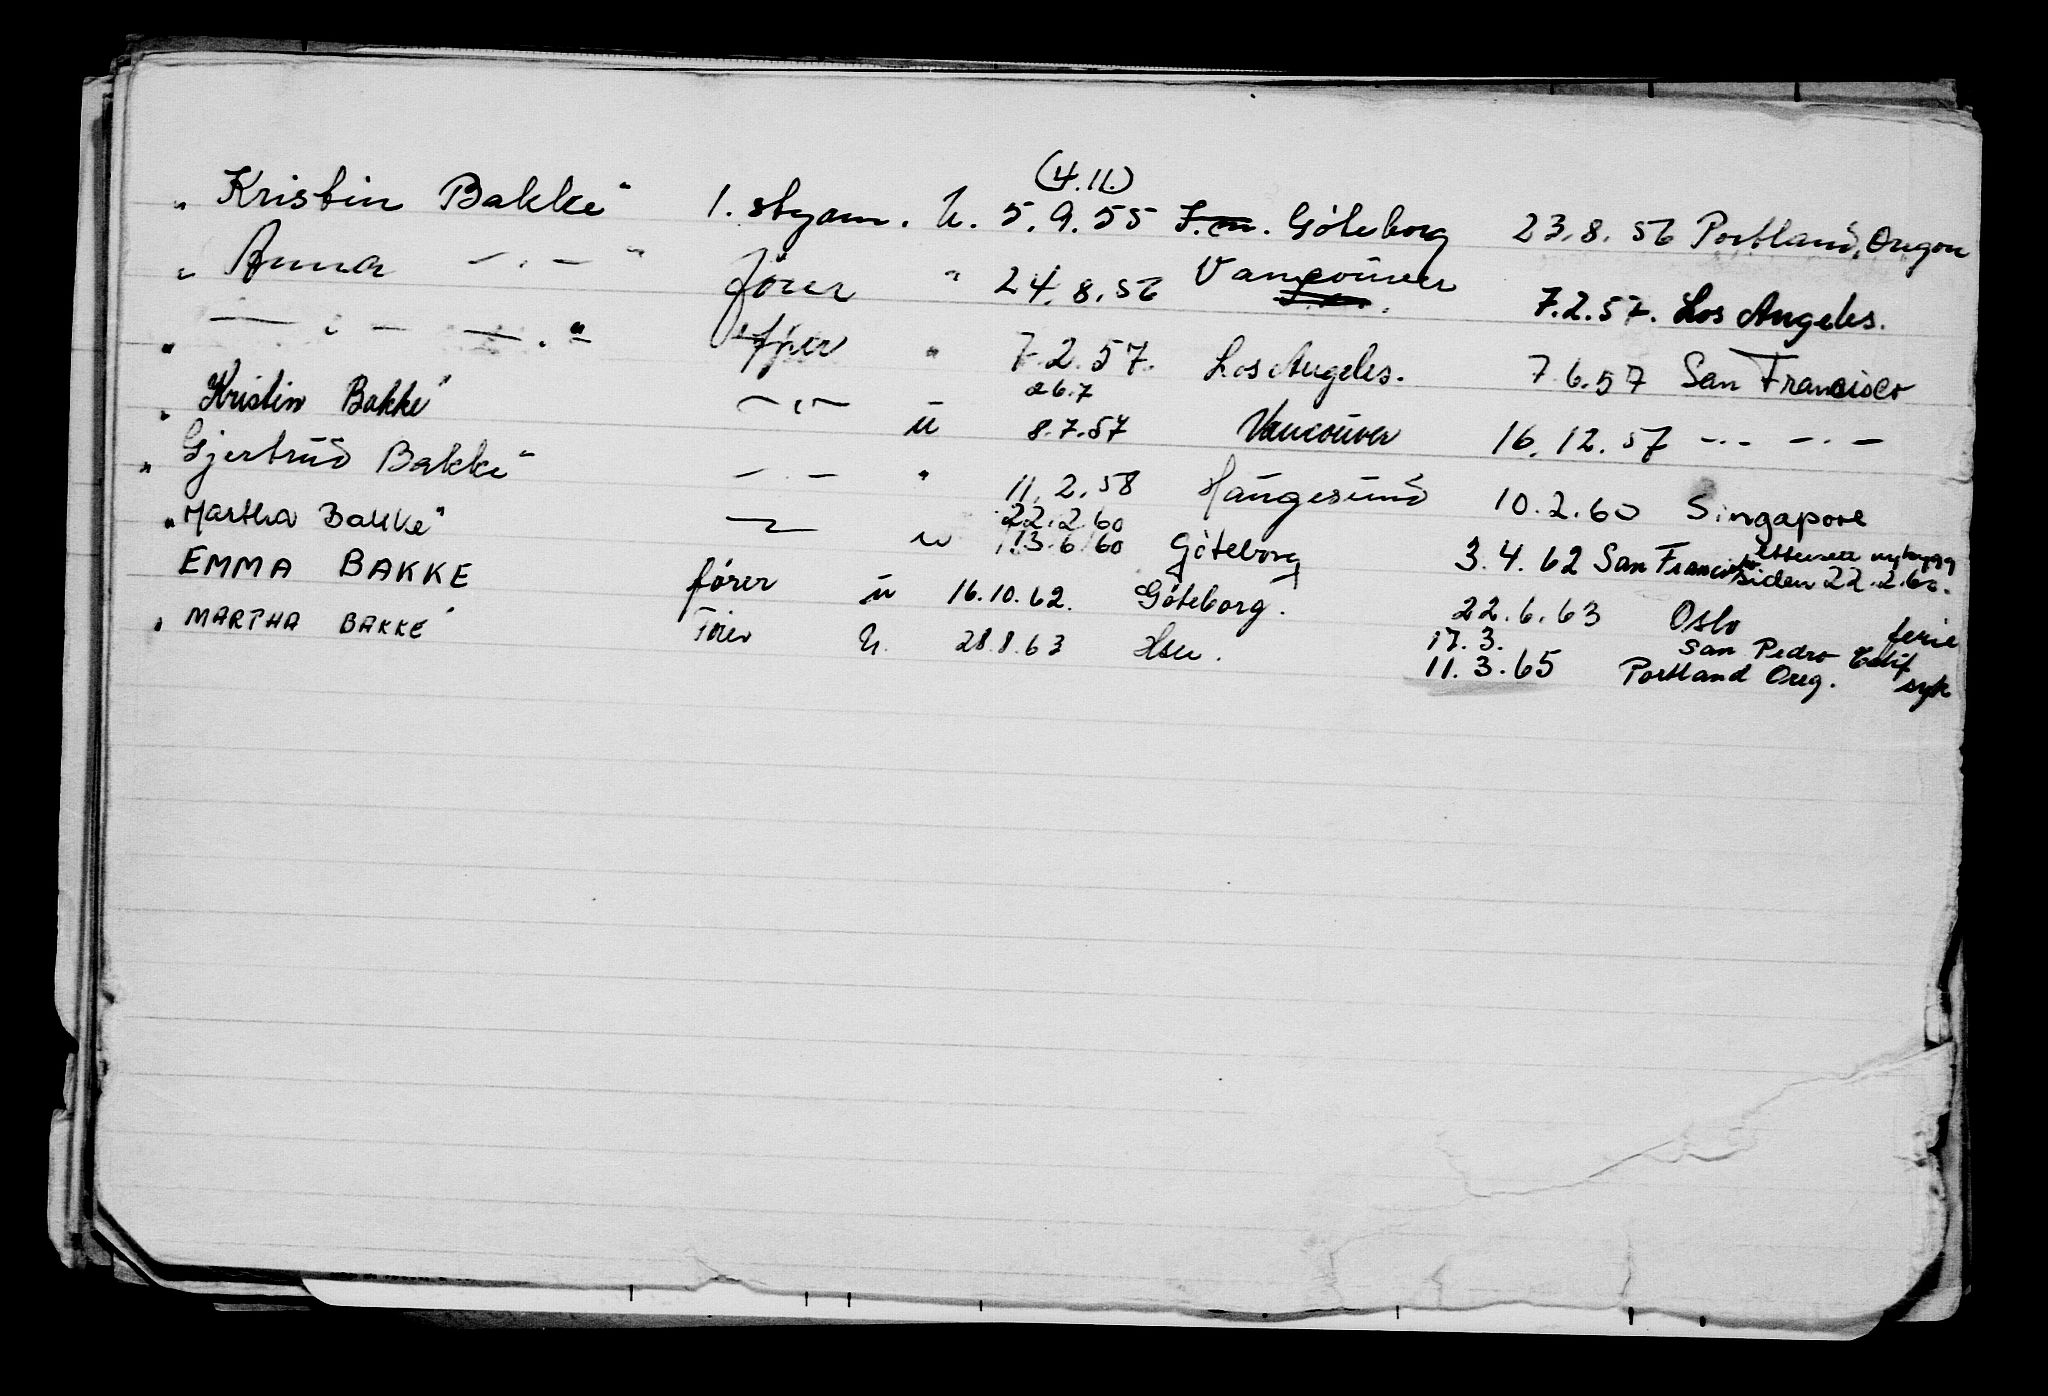 (4.11.)
"Kristin Bakke" 1. styrm. U. 5.9.55 Göteborg 23.8.56 Portland, Oregon
"Anna — . — " fører " 24.8.56 Vancouver 7.2.57. Los Angeles.
" — . — — . — " fører " 7.2.57. Los Angeles. 7.6.57 San Francisco
26.7
"Kristin Bakke" — . — u 8.7.57 Vancouver 16.12.57 — . — — . —
"Gjertrud Bakke" — . — " 11.2.58 Haugesund 10.2.60 Singapore
22.2.60
"Martha Bakke" — u 13.6.60 Göteborg 3.4.62 San Francisco nybygg siden 22.2.60.
EMMA BAKKE fører u 16.10.62. Göteborg. 22.6.63 Oslo ferie
17.3. San Pedro Calif
"MARTHA BAKKE" fører U. 28.8.63 Hsu. 11.3.65 Portland Oreg. syk